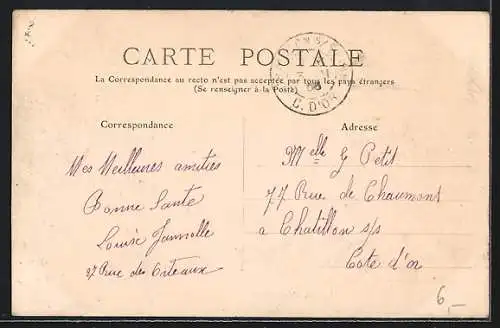 CARTE POSTALE
La Correspondance au recto n'est pas acceptée par tous les pays étrangers
(Se renseigner à la Poste)
C. D'OR
Correspondance
Mes Meilleures amitiés
Bonne Sante
Louise
27 Rue des Citeaux
Adresse
Melle G Petit
77 Rue de Chaumont
a Chatillon s/s
Cote d'or
6,—